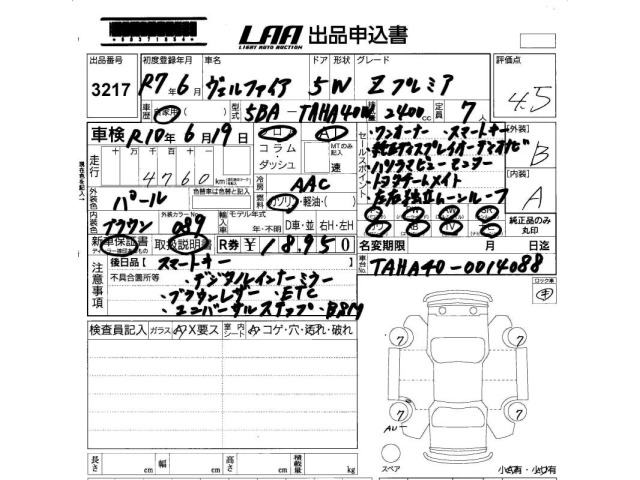 LAA 出品申込書
LIGHT AUTO AUCTION
出品番号 初度登録年月 車名 ドア 形状 グレード 評価点
3217 R7年6月 ヴェルファイア 5W Zプレミア 4.5
車歴 自家用( ) 型式 5BA-TAHA40W 2400cc 定員 7人
車検 R10年6月19日 フロア AT セールスポイント ・ワンオーナー スマートキー [外装]
走行 十万 万 千 百 十 コラム MTのみ記入 ・純正ディスプレイオーディオナビ B
4760km ダッシュ 速 ・パノラマビューモニター [内装]
外装色 パール 色替車は色替と記入 冷房 AAC ・トヨタチームメイト A
燃料 ガソリン・軽油・( ) ・左右独立ムーンルーフ
内装色 ブラウン 外装カラーNo. 089 輸入車 モデル年式 年・不明 D車・並 右H・左H 純正品のみ丸印
新車保証書 取扱説明書 R券 ¥18,950 名変期限 月 日迄
注意事項 後日品[ スマートキー 車台No. TAHA40-0014088
不具合箇所等 ・デジタルインナーミラー
・ブラウンレザー ・ETC
・ユニバーサルステップ ・BSM
ロック車
検査員記入 ガラス A・X要ス 室内シート A・コゲ・穴・汚れ・破れ
7 7
7 7
AU
長さ cm 幅 cm 高さ cm 積載量 kg スペア 小さ有・小ウ有